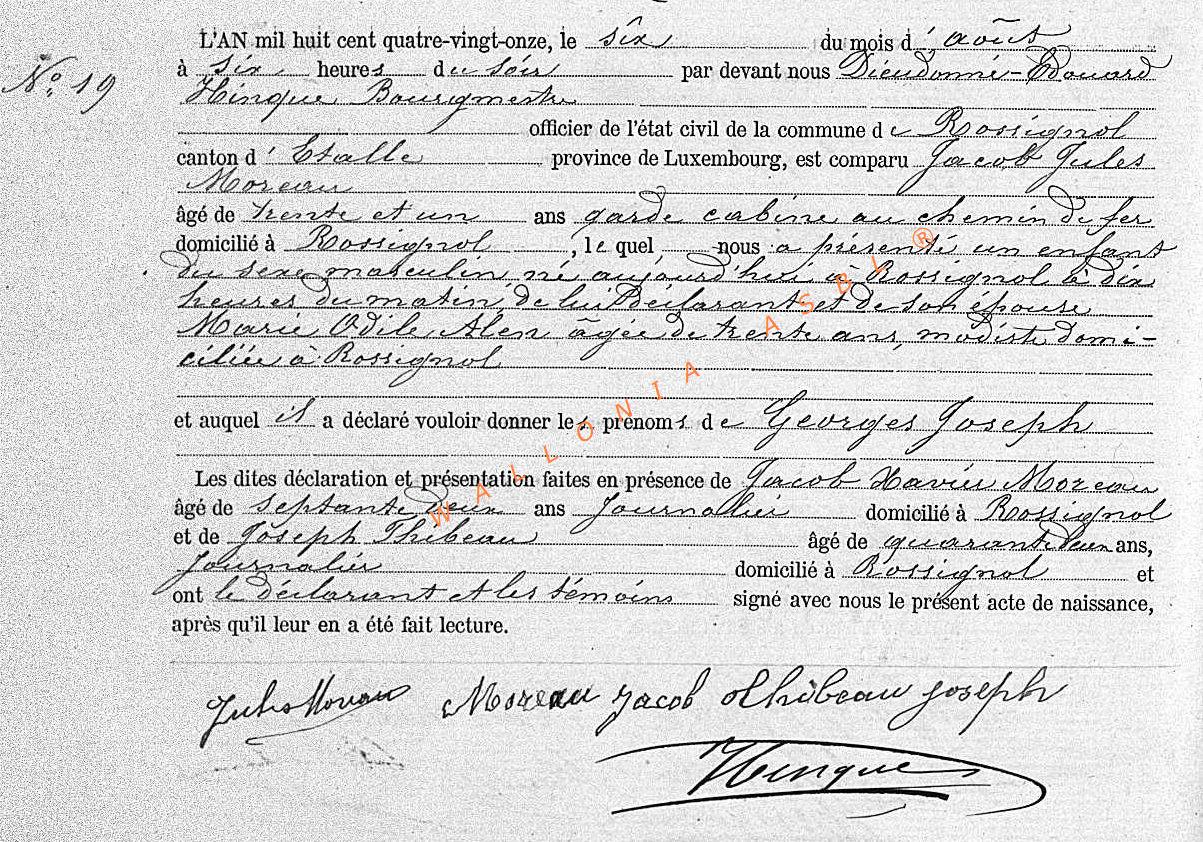 L'AN mil huit cent quatre-vingt-onze, le six du mois d'août
No. 19
à six heures du soir par devant nous Dieudonné-Edouard
Hinque Bourgmestre
officier de l'état civil de la commune de Rossignol
canton d'Etalle province de Luxembourg, est comparu Jacob Jules
Moreau
âgé de trente et un ans garde cabine au chemin de fer
domicilié à Rossignol, lequel nous a présenté un enfant
du sexe masculin, né aujourd'hui à Rossignol à dix
heures du matin, de lui Déclarant et de son épouse
Marie Odile Alen âgée de trente ans, modiste domi-
ciliée à Rossignol
et auquel il a déclaré vouloir donner les prénoms de Georges Joseph
Les dites déclaration et présentation faites en présence de Jacob Xavier Moreau
âgé de septante deux ans Journalier domicilié à Rossignol
et de Joseph Thibeau âgé de quarante deux ans,
Journalier domicilié à Rossignol et
ont le déclarant et les témoins signé avec nous le présent acte de naissance,
après qu'il leur en a été fait lecture.
Jules Moreau Moreau Jacob Thibeau Joseph
Hinque
WALLONIA ASBL ®